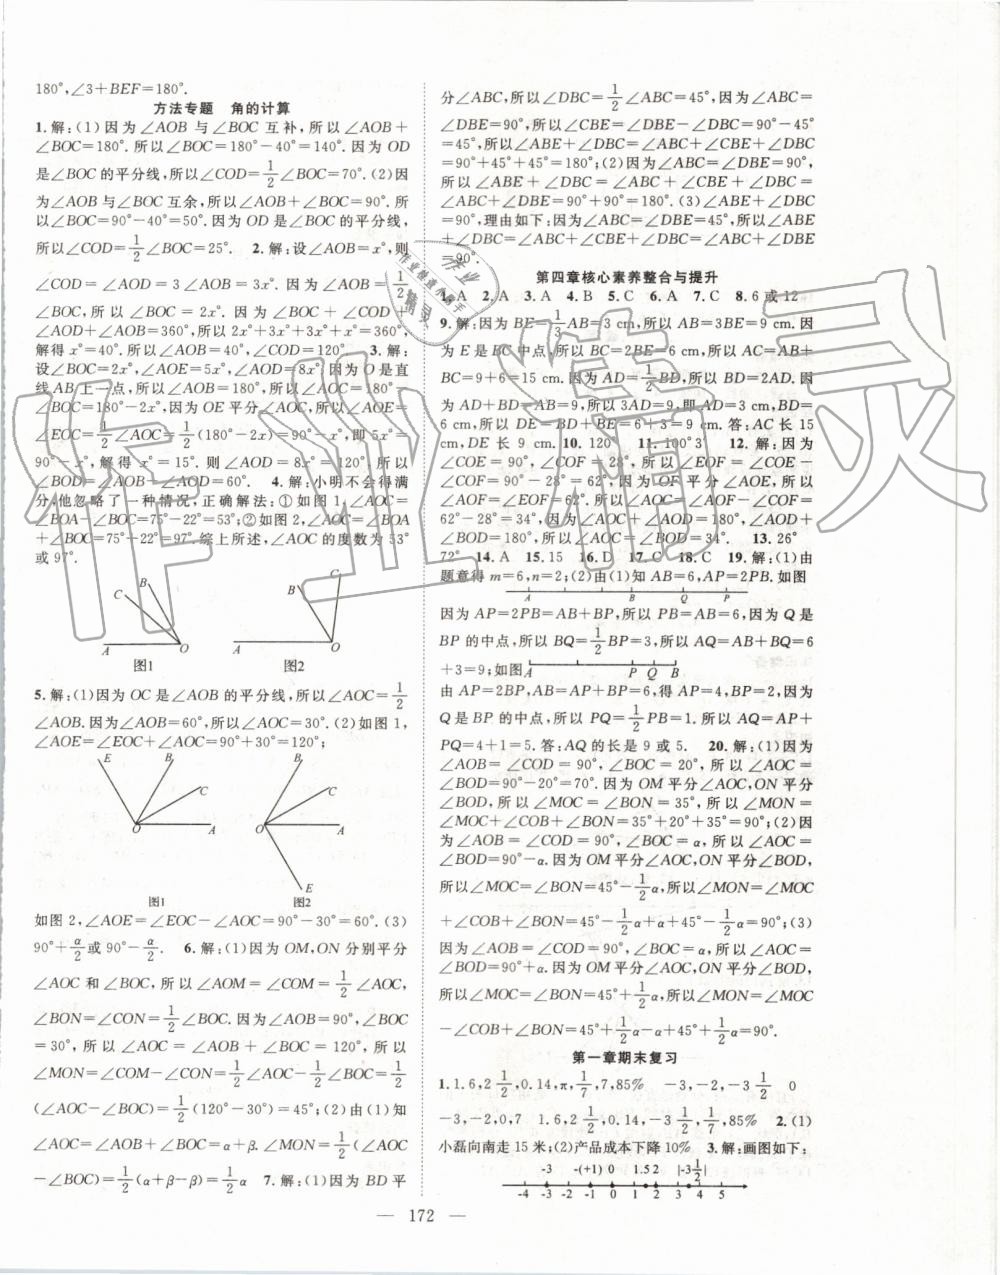 180°,∠3+BEF=180°.
方法专题　角的计算
1.解:(1)因为∠AOB与∠BOC互补,所以∠AOB+
∠BOC=180°.所以∠BOC=180°-40°=140°.因为OD
是∠BOC的平分线,所以∠COD=1/2∠BOC=70°.(2)因
为∠AOB与∠BOC互余,所以∠AOB+∠BOC=90°.所
以∠BOC=90°-40°=50°.因为OD是∠BOC的平分线,
所以∠COD=1/2∠BOC=25°.　2.解:设∠AOB=x°,则
∠COD=∠AOD=3∠AOB=3x°.因为∠AOB=1/2
∠BOC,所以∠BOC=2x°.因为∠BOC+∠COD+
∠AOD+∠AOB=360°,所以2x°+3x°+3x°+x°=360°,
解得x°=40°.所以∠AOB=40°,∠COD=120°.　3.解:
设∠BOC=2x°,∠AOE=5x°,∠AOD=8x°.因为O是直
线AB上一点,所以∠AOB=180°,所以∠AOC=180°-
∠BOC=180°-2x°,因为OE平分∠AOC,所以∠AOE=
∠EOC=1/2∠AOC=1/2(180°-2x)=90°-x°,即5x°=
90°-x°,解得x°=15°.则∠AOD=8x°=120°,所以
∠BOD=∠AOB-∠AOD=60°.　4.解:小明不会得满
分,他忽略了一种情况,正确解法:①如图1,∠AOC=
∠BOA-∠BOC=75°-22°=53°;②如图2,∠AOC=∠BOA
+∠BOC=75°+22°=97°.综上所述,∠AOC的度数为53°
或97°.
B
C
A
O
图1
B
C
A
O
图2
5.解:(1)因为OC是∠AOB的平分线,所以∠AOC=1/2
∠AOB.因为∠AOB=60°,所以∠AOC=30°.(2)如图1,
∠AOE=∠EOC+∠AOC=90°+30°=120°;
E
B
C
O
A
图1
B
C
O
A
E
图2
如图2,∠AOE=∠EOC-∠AOC=90°-30°=60°.(3)
90°+α/2或90°-α/2.　6.解:(1)因为OM,ON分别平分
∠AOC和∠BOC,所以∠AOM=∠COM=1/2∠AOC,
∠BON=∠CON=1/2∠BOC.因为∠AOB=90°,∠BOC
=30°,所以∠AOC=∠AOB+∠BOC=120°,所以
∠MON=∠COM-∠CON=1/2∠AOC-1/2∠BOC=1/2
(∠AOC-∠BOC)=1/2(120°-30°)=45°;(2)由(1)知
∠AOC=∠AOB+∠BOC=α+β.∠MON=1/2(∠AOC
-∠BOC)=1/2(α+β-β)=1/2α　7.解:(1)因为BD平
分∠ABC,所以∠DBC=1/2∠ABC=45°,因为
∠DBE=90°,所以∠CBE=∠DBE-∠DBC=90°-45°
=45°,所以∠ABE+∠DBC=∠ABC+∠CBE+∠DBC
=90°+45°+45°=180°;(2)因为∠ABC=∠DBE=90°,
所以∠ABE+∠DBC=∠ABC+∠CBE+∠DBC=
∠ABC+∠DBE=90°+90°=180°.(3)∠ABE+∠DBC
=90°,理由如下:因为∠ABC=∠DBE=45°,所以∠ABE
+∠DBC=∠ABC+∠CBE+∠DBC=∠ABC+∠DBE
=90°.
第四章核心素养整合与提升
1.A　2.A　3.A　4.B　5.C　6.A　7.C　8.6或12
9.解:因为BE=1/3AB=3 cm,所以AB=3BE=9 cm.因
为E是BC中点,所以BC=2BE=6 cm,所以AC=AB+
BC=9+6=15 cm.因为AD=1/2BD,所以BD=2AD.因
为AD+BD=AB=9,所以3AD=9,即AD=3 cm,BD=
6 cm.所以DE=BD+BE=6+3=9 cm.答:AC长15
cm,DE长9 cm.　10.120°　11.100°3′　12.解:因为
∠COE=90°,∠COF=28°,所以∠EOF=∠COE-
∠COF=90°-28°=62°,因为OF平分∠AOE,所以
∠AOF=∠EOF=62°,所以∠AOC=∠AOF-∠COF=
62°-28°=34°,因为∠AOC+∠AOD=180°,∠AOD+
∠BOD=180°,所以∠AOC=∠BOD=34°.　13.26°
72°　14.A　15.15　16.D　17.C　18.C　19.解:(1)由
题意得m=6,n=2;(2)由(1)知AB=6,AP=2PB.如图
A B Q P
因为AP=2PB=AB+BP,所以PB=AB=6,因为Q是
BP的中点,所以BQ=1/2BP=3,所以AQ=AB+BQ=6
+3=9;如图A P Q B
由AP=2BP,AB=AP+BP=6,得AP=4,BP=2,因为
Q是BP的中点,所以PQ=1/2PB=1.所以AQ=AP+
PQ=4+1=5.答:AQ的长是9或5.　20.解:(1)因为
∠AOB=∠COD=90°,∠BOC=20°,所以∠AOC=
∠BOD=90°-20°=70°.因为OM平分∠AOC,ON平分
∠BOD,所以∠MOC=∠BON=35°,所以∠MON=
∠MOC+∠COB+∠BON=35°+20°+35°=90°;(2)因
为∠AOB=∠COD=90°,∠BOC=α,所以∠AOC=
∠BOD=90°-α.因为OM平分∠AOC,ON平分∠BOD,
所以∠MOC=∠BON=45°-1/2α,所以∠MON=∠MOC
+∠COB+∠BON=45°-1/2α+α+45°-1/2α=90°;(3)
因为∠AOB=∠COD=90°,∠BOC=α,所以∠AOC=
∠BOD=90°+α.因为OM平分∠AOC,ON平分∠BOD,
所以∠MOC=∠BON=45°+1/2α,所以∠MON=∠MOC
-∠COB+∠BON=45°+1/2α-α+45°+1/2α=90°.
第一章期末复习
1.1.6,2 1/2,0.14,π,1/7,7,85%　-3,-2,-3 1/2　0
-3,-2,0,7　1.6,2 1/2,0.14,-3 1/2,1/7,85%　2.(1)
小磊向南走15米;(2)产品成本下降10%　3.解:画图如下:
-3 -(+1) 0 1.5 2 |-3 1/2|
-4 -3 -2 -1 0 1 2 3 4 5
— 172 —
作业精灵
作业
作业检查小助手
精灵